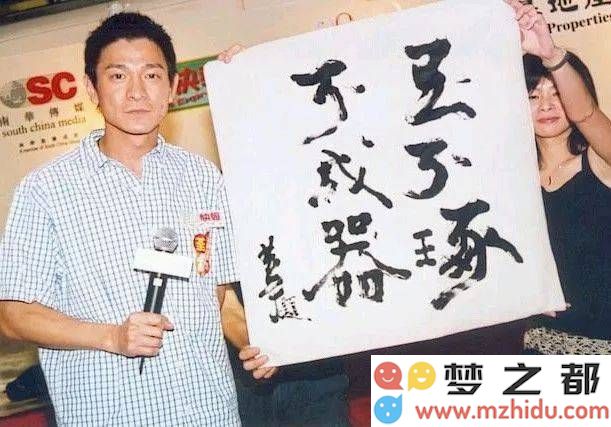 SC
南華傳媒
south china media
快報
地產
Properties
玉不琢
不成器
快報
梦之都
www.mzhidu.com